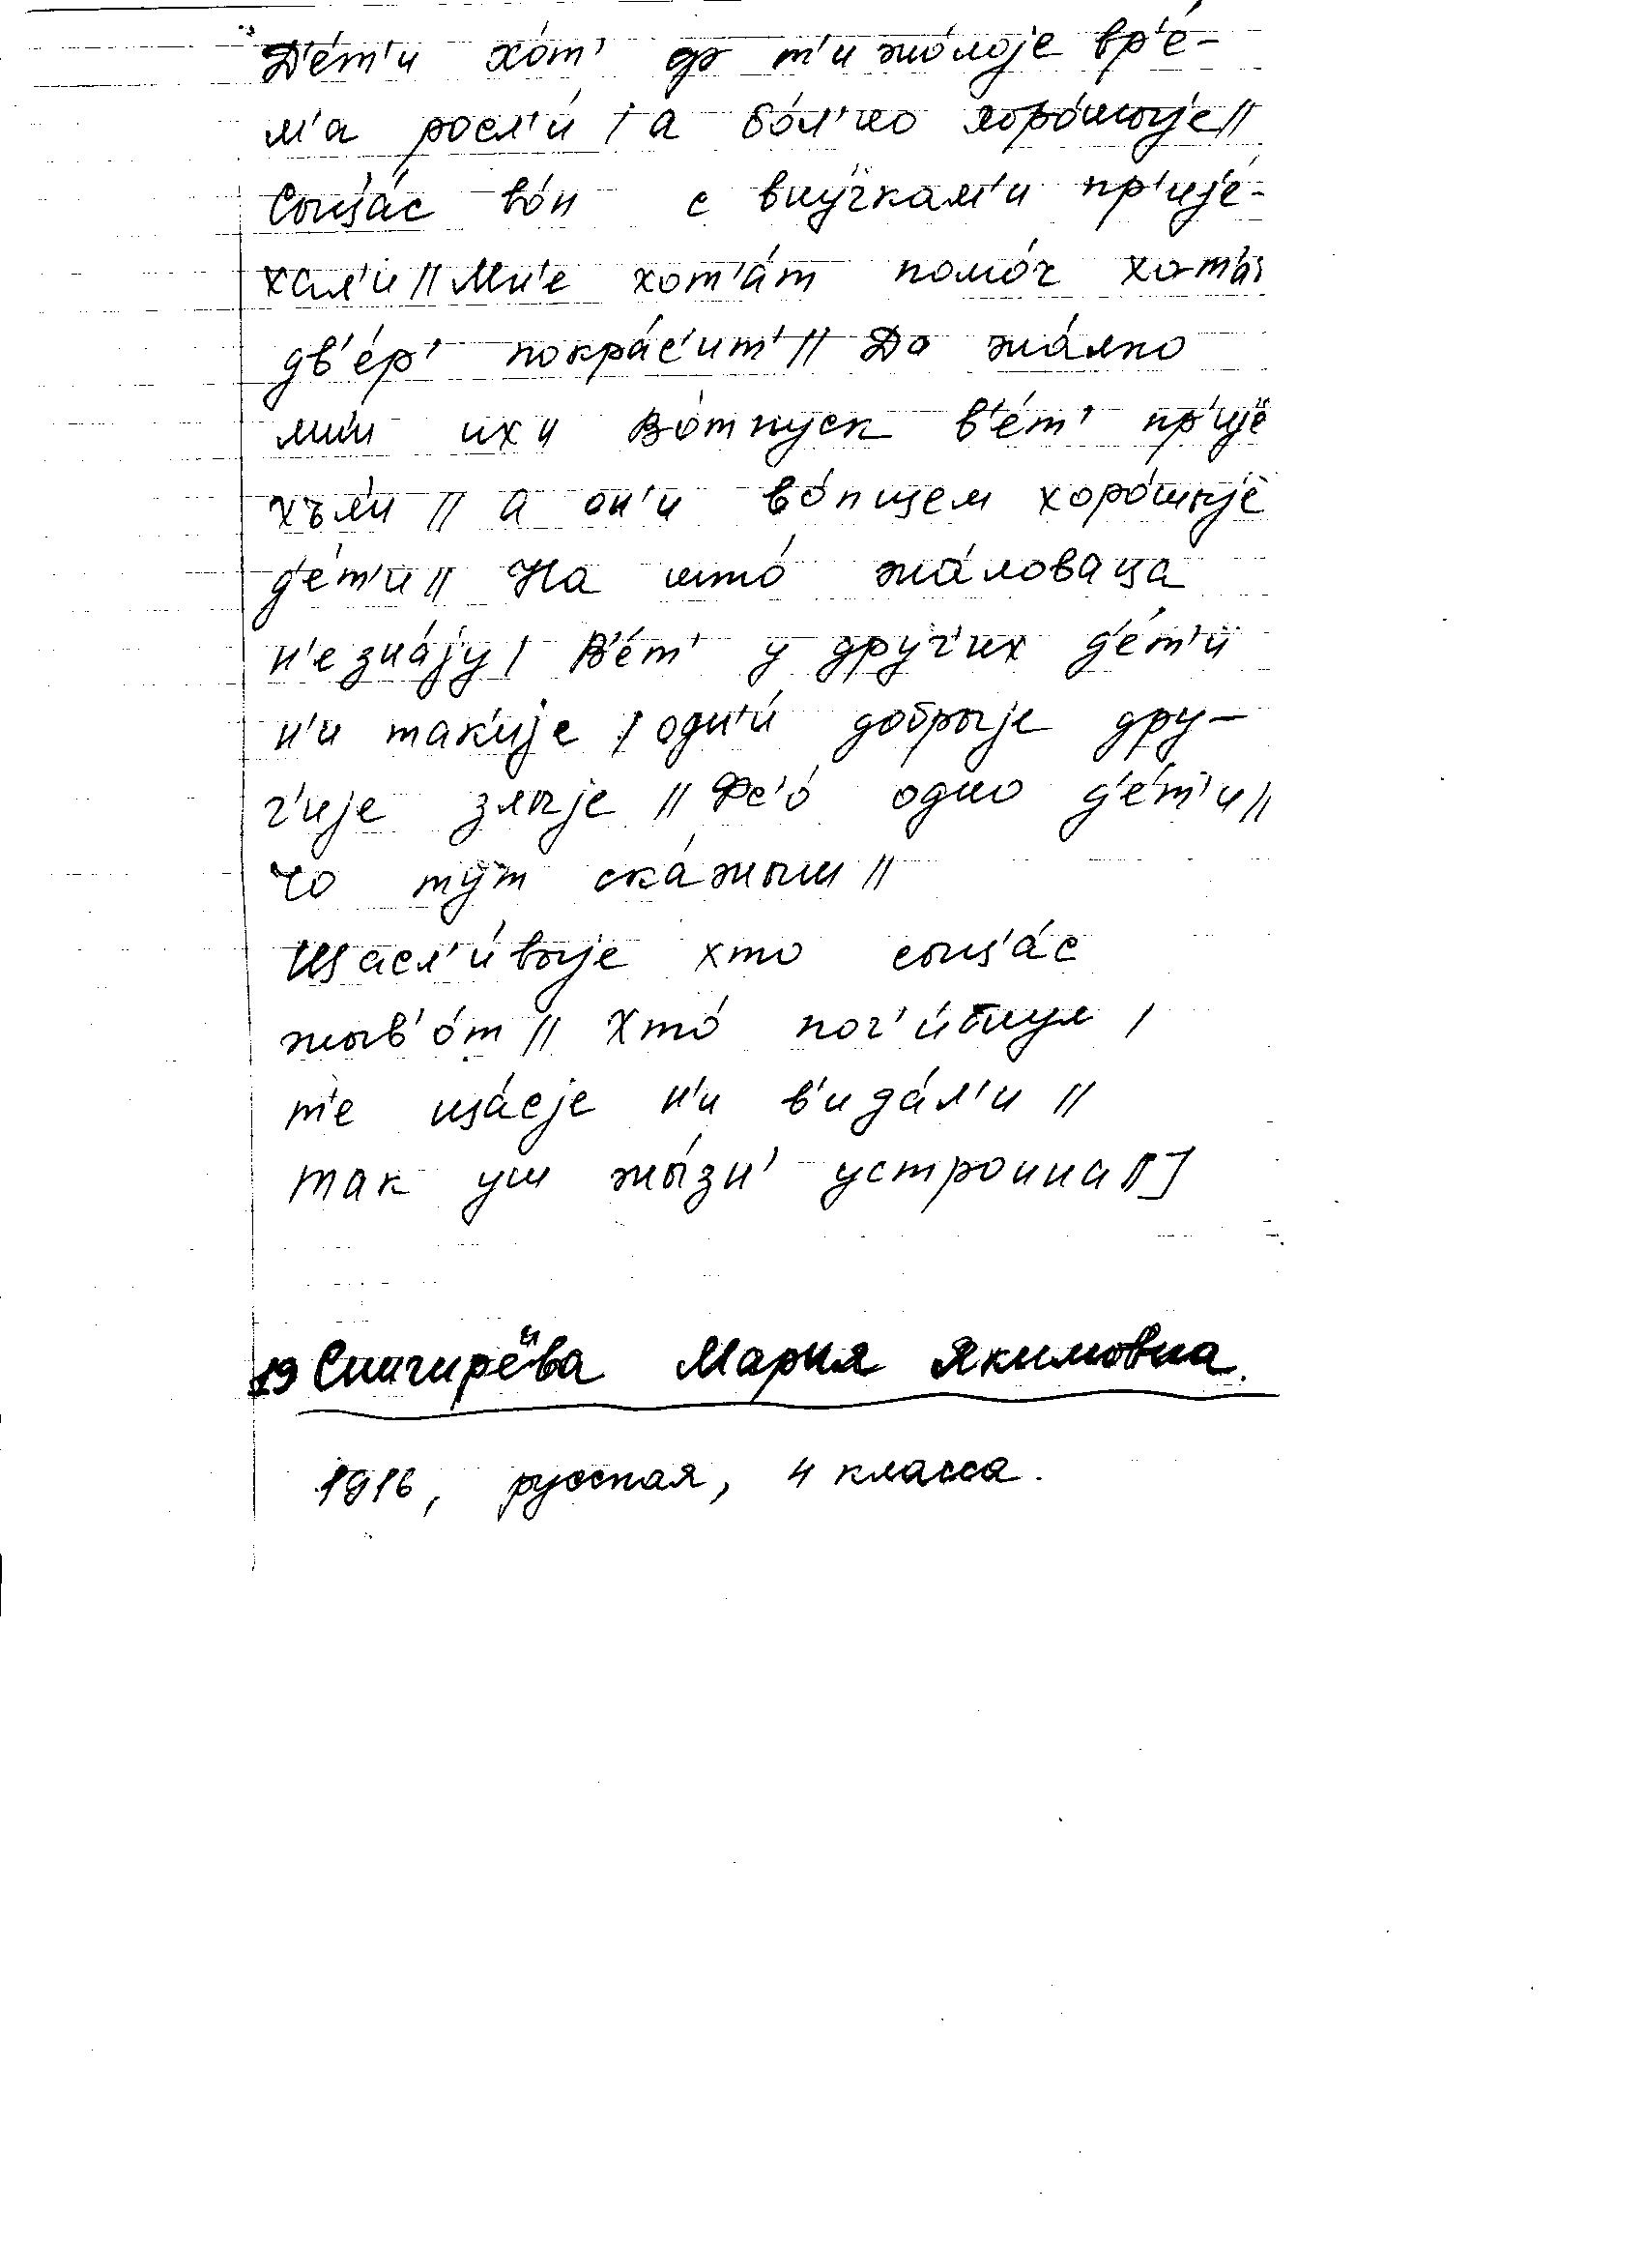 Д'е́т'и хо́т' ф т'и жо́лоје вр'е́-
м'а росл'и́ / а бо́л'но хоро́шыје //
Сыща́с во́н с вну́чкам'и пр'ије́-
хал'и // Мн'е хот'а́т помо́ч хот'а́
дв'е́р' покра́с'ит' // Да жа́лко
мн'и их и во́тпуск в'е́т' пр'ије́
хъл'и // а он'и во́пщем хоро́шыје
д'е́т'и // На што́ жа́ловаца
н'е зна́ју / В'е́т' у друг'их д'е́т'и
н'и так'ије / одн'и́ добрыје дру-
г'ије злыје // Фс'о́ одно д'е́т'и //
Чо ту́т ска́жыш //
Щасл'и́выје хто сыщ'а́с
жыв'о́т // Хто́ пог'и́бнул /
т'е ща́сје н'и в'ида́л'и //
так уш жы́зн' устроина //]
19 Снигирёва Мария Якимовна.
1916, русская, 4 класса.